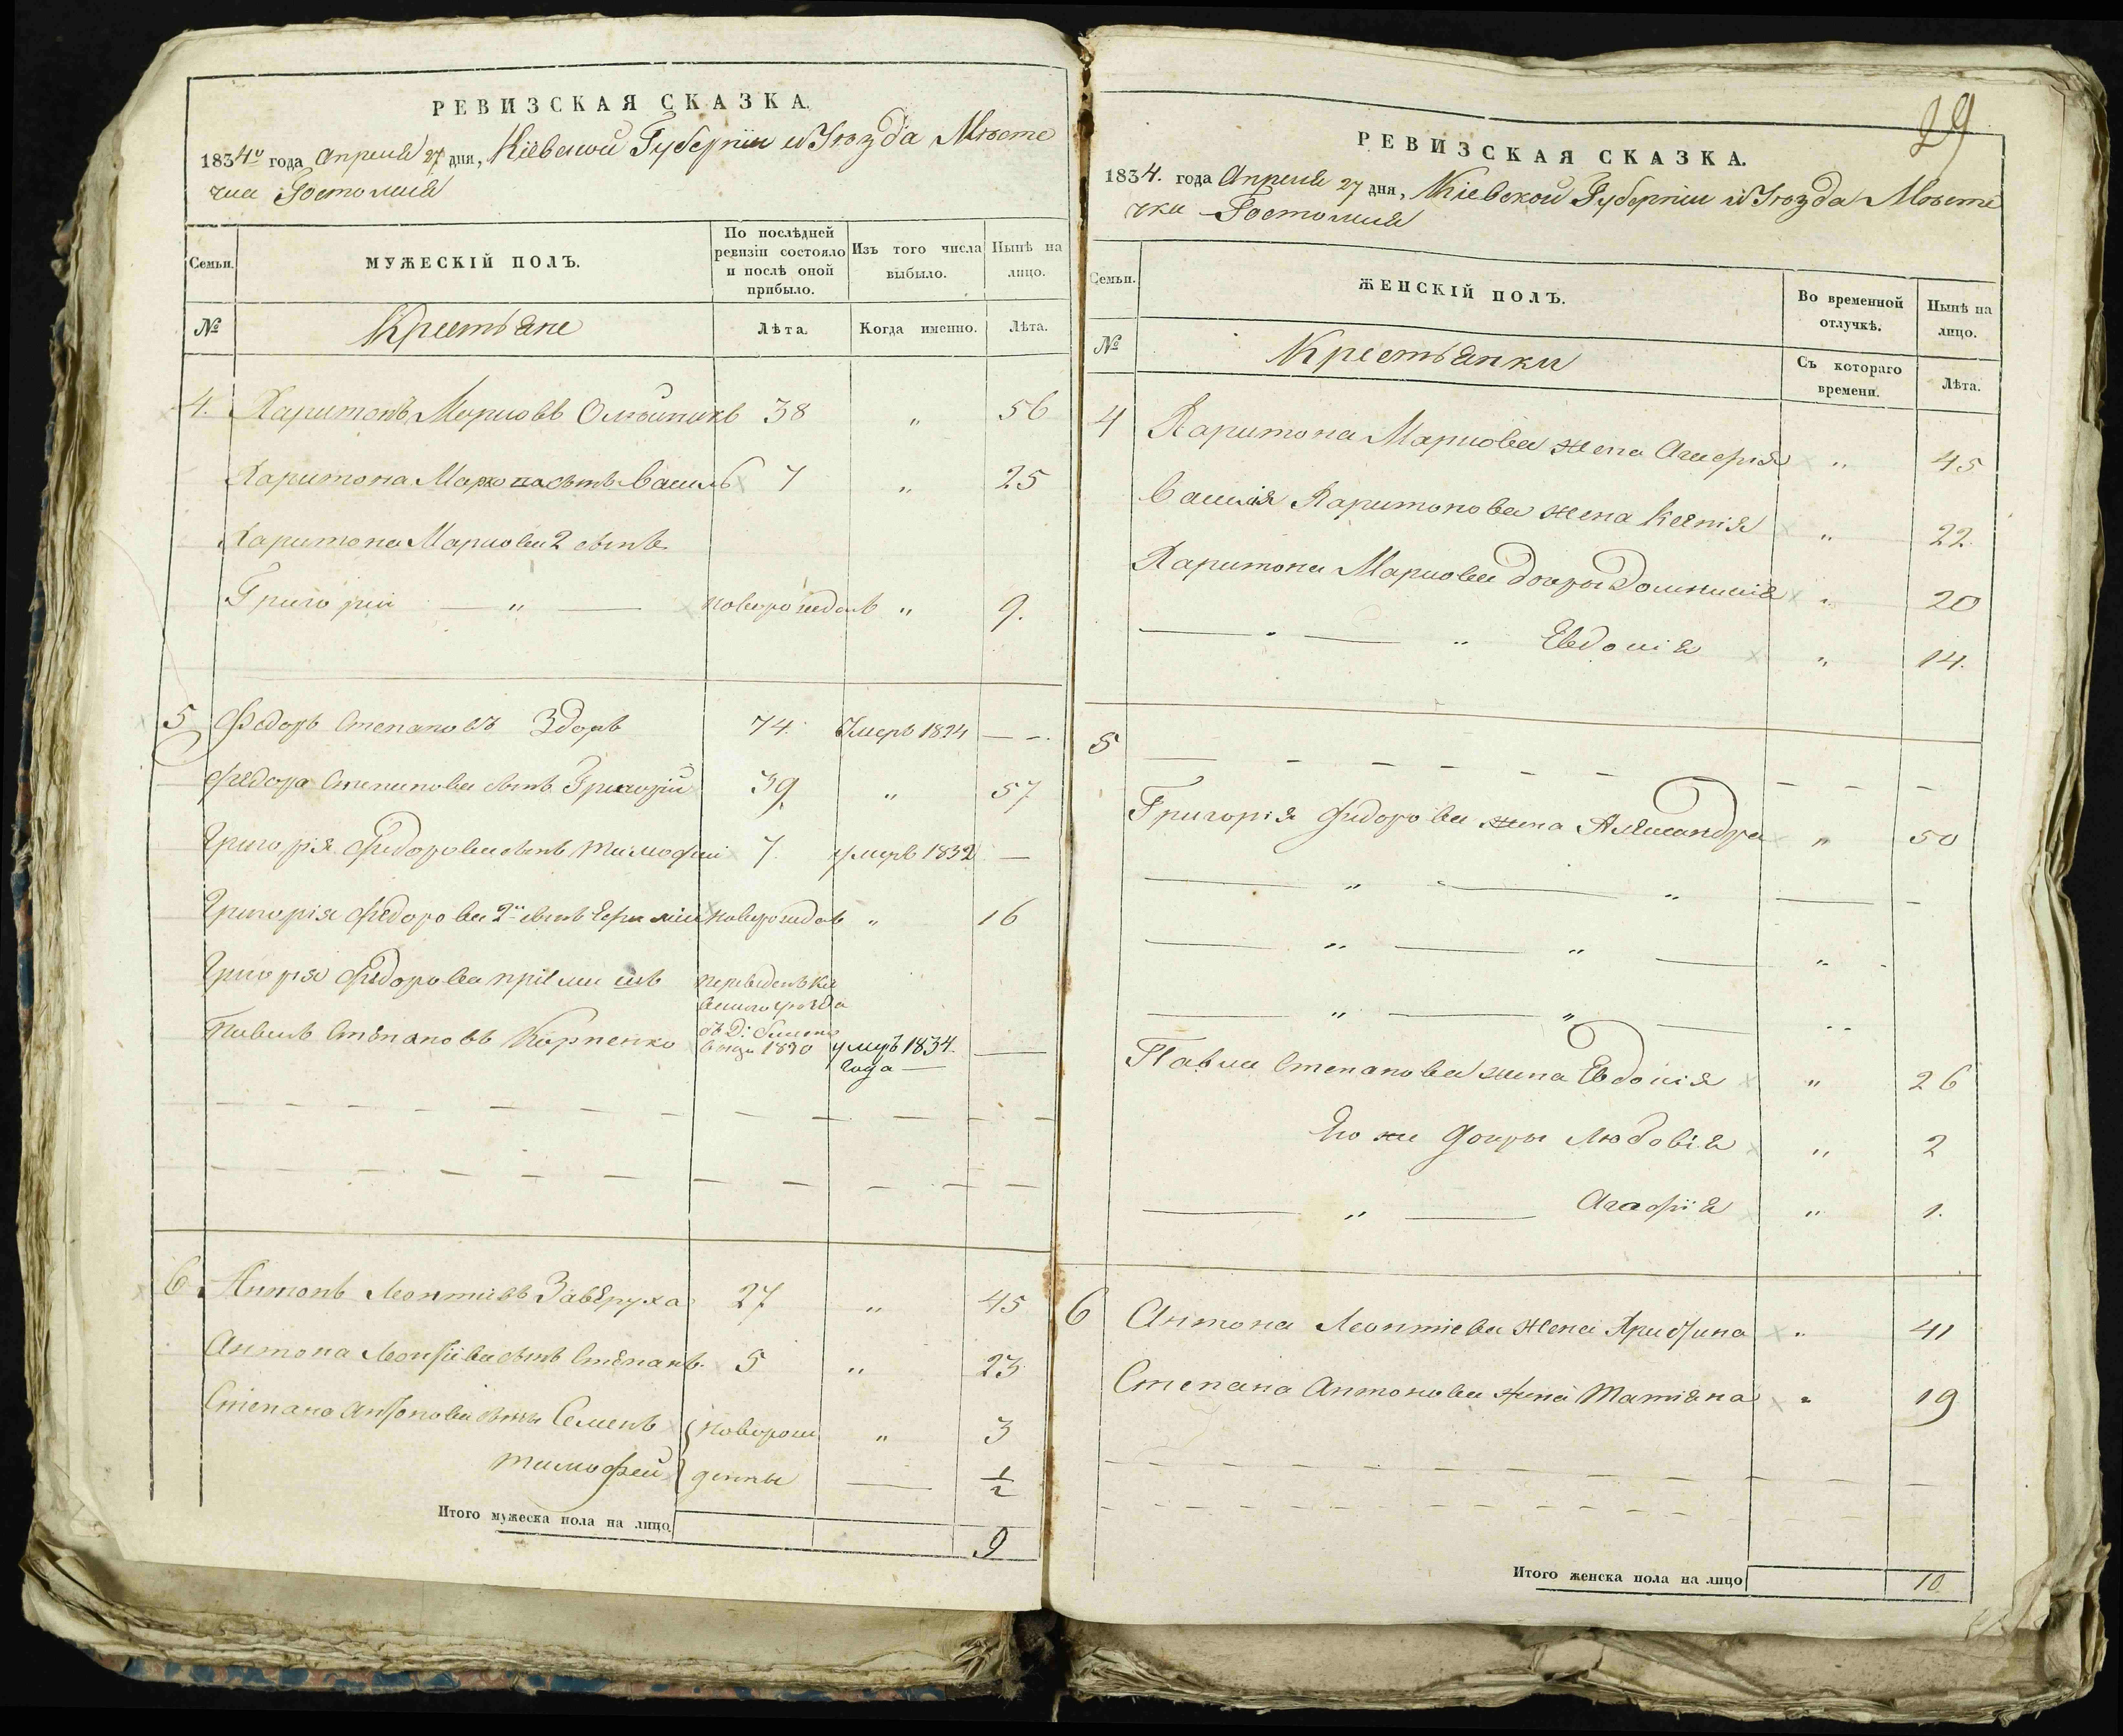 РЕВИЗСКАЯ СКАЗКА.
1834го года Апреля 27 дня, Кіевской Губерніи и Уѣзда Мѣсте
чка Гостомля
Семьи.
МУЖЕСКІЙ ПОЛЪ.
По послѣдней ревизіи состояло и послѣ оной прибыло.
Изъ того числа выбыло.
Нынѣ на лицо.
№
Крестьяне
Лѣта.
Когда именно.
Лѣта.
4. Харитонъ Марковъ Олѣйникъ 38 „ 56
Харитона Маркова сынъ Василь 7 „ 25
Харитона Маркова 2 сынъ
Григорій — „ — новорожденъ „ 9.
5 Федоръ Степановъ Здоръ 74. Умеръ 1824 — -.
Федора Степанова сынъ Григорій 39 „ 57
Григорія Федорова сынъ Тимофей 7. умеръ 1832 —
Григорія Федорова 2й сынъ новорожденъ „ 16
Григорія Федорова пріемишъ переведенъ
Павелъ Степановъ Корпенко 1830 умеръ 1834. —
года —
6. Антонъ Леонтіевъ Завѣруха 27 „ 45
Антона Леонтіева сынъ Степанъ. 5 „ 23
Степана Антонова сыны Семенъ { новорож „ 3
Тимофей } денны — 1/2
Итого мужеска пола на лицо 9
29
РЕВИЗСКАЯ СКАЗКА.
1834. года Апреля 27 дня, Кіевской Губерніи и Уѣзда Мѣсте
чка Гостомля
Семьи.
ЖЕНСКІЙ ПОЛЪ.
Во временной отлучкѣ.
Нынѣ на лицо.
№
Крестьянки
Съ котораго времени.
Лѣта.
4 Харитона Маркова жена Агафія „ 45
Василія Харитонова жена Ксенія „ 22.
Харитона Маркова дочь Домникія „ 20
— „ — „ Евдокія „ 14.
5
Григорія Федорова жена Александра „ 50
Павла Степанова жена Евдокія „ 26
Его же дочери Любовія „ 2
— „ — Агафія „ 1.
6 Антона Леонтіева жена Христина „ 41
Степана Антонова жена Татіяна „ 19
Итого женска пола на лицо 10